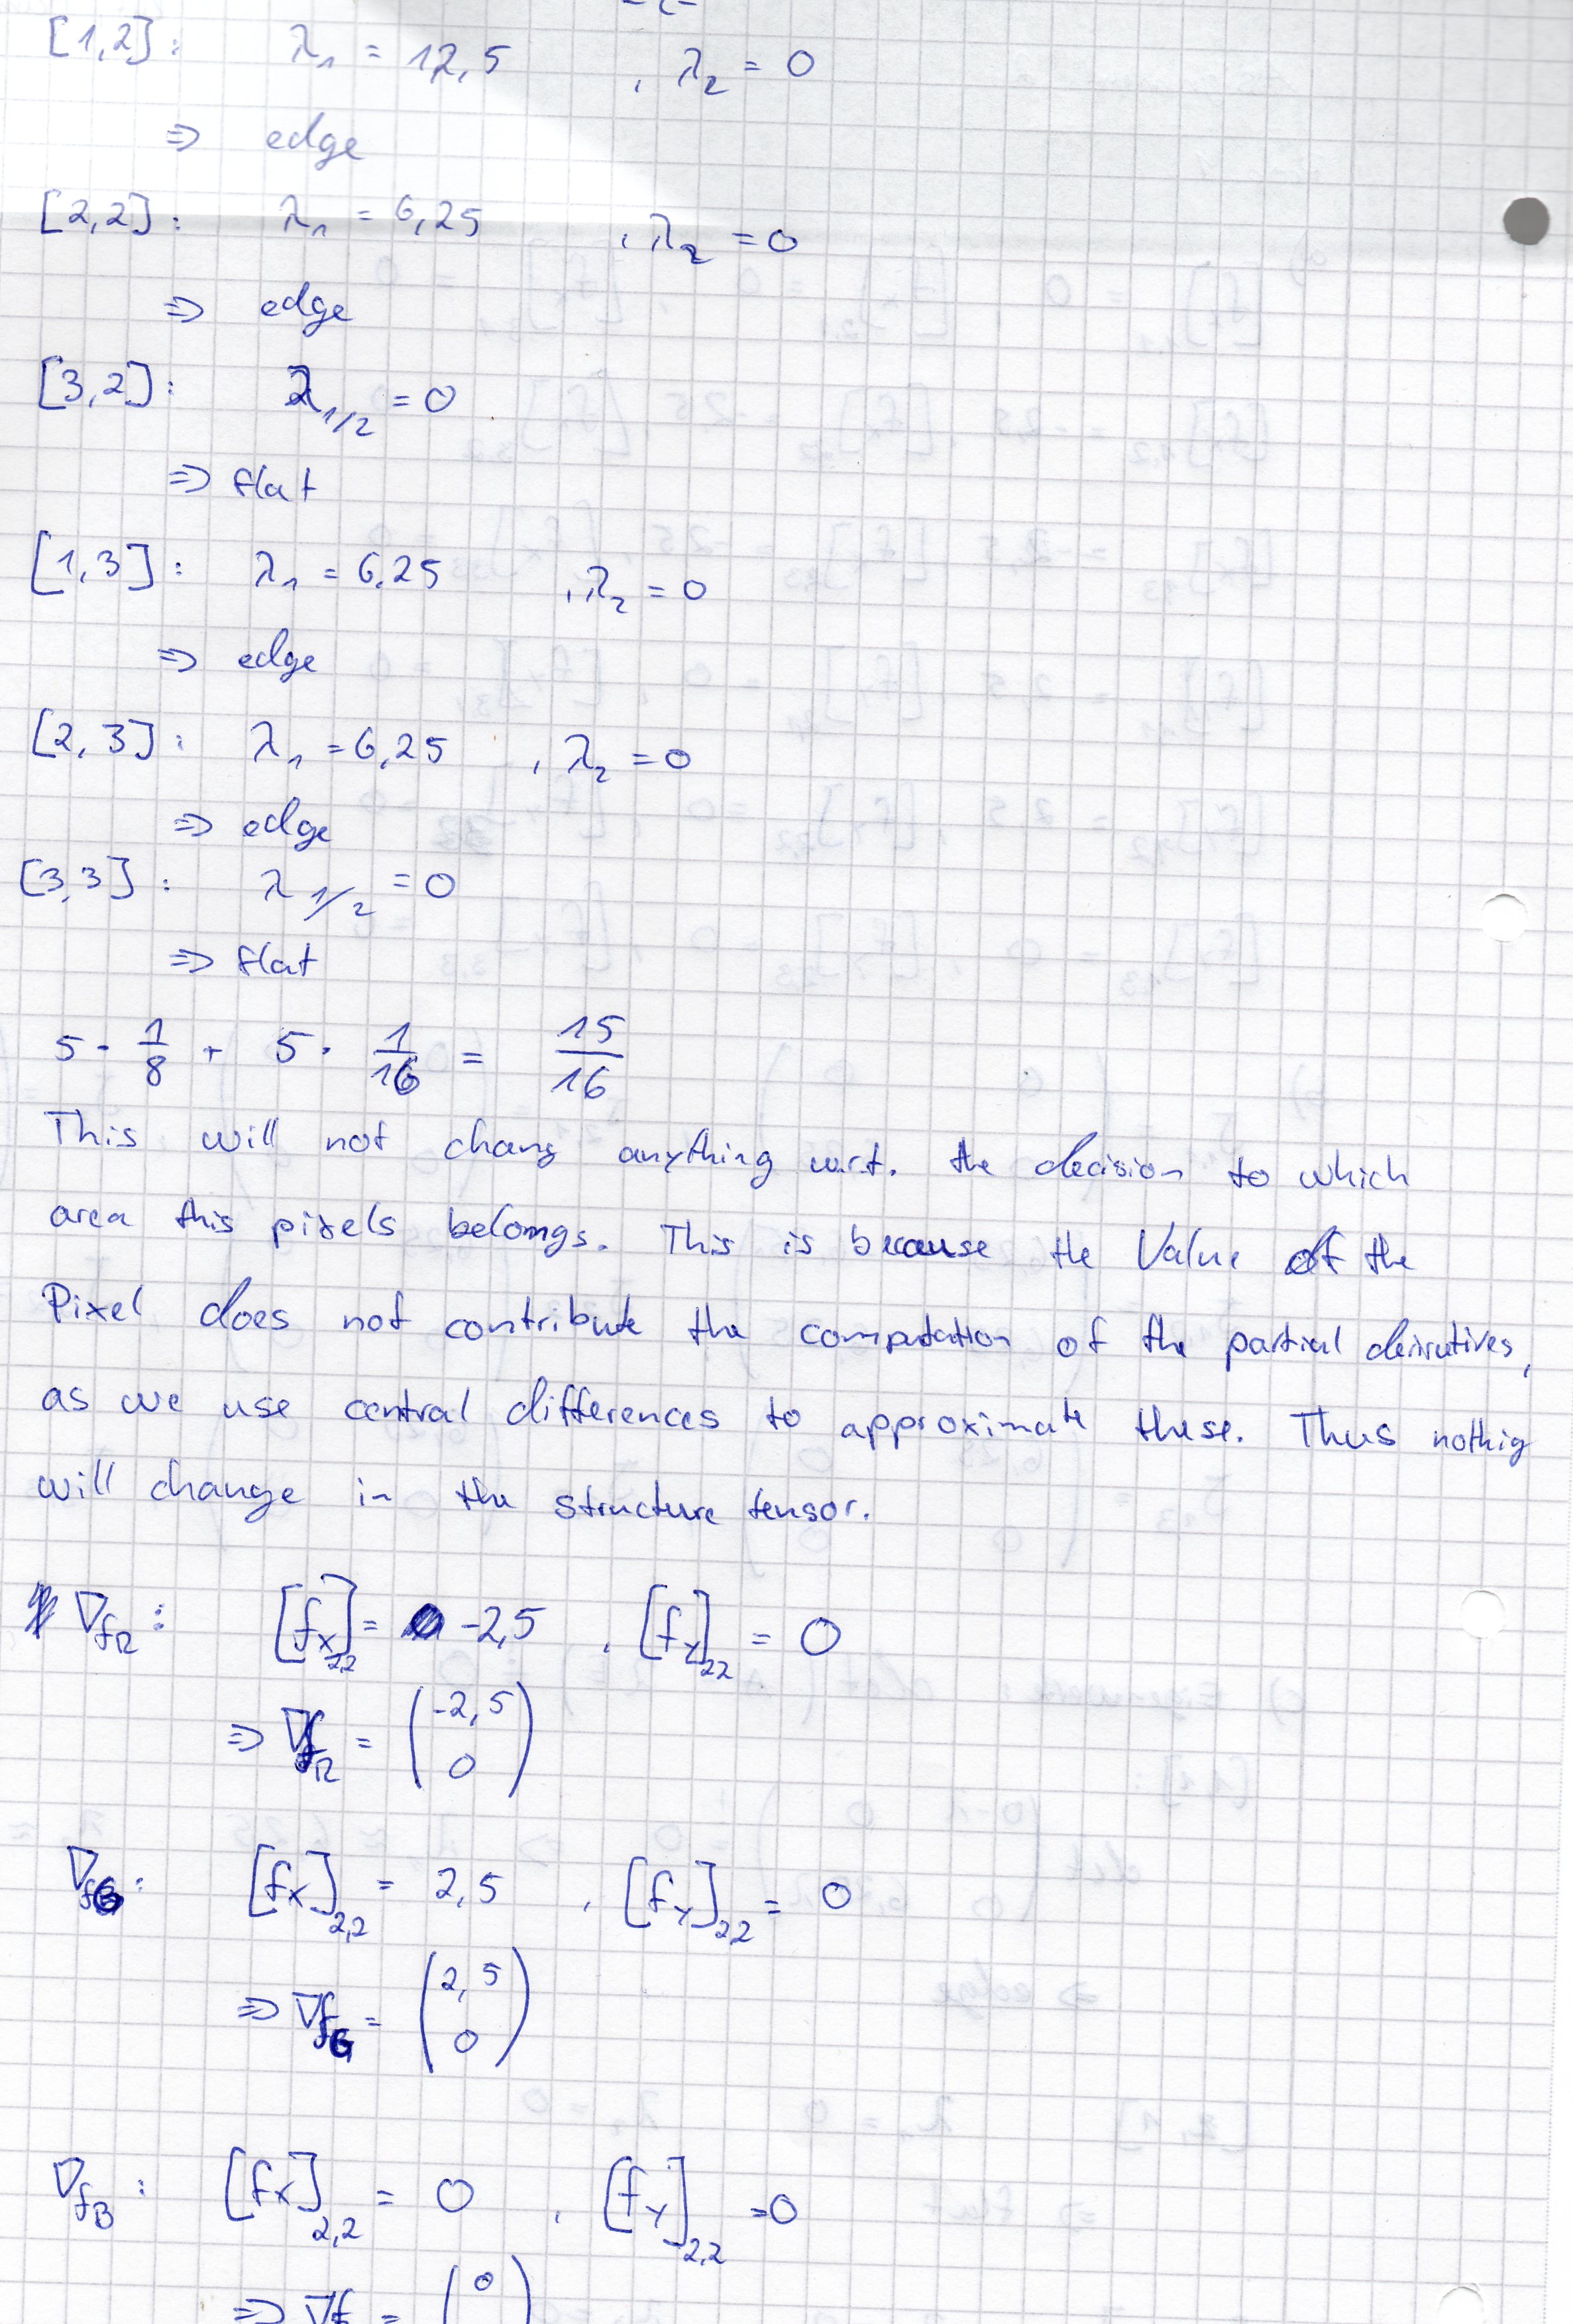 -2-
[1,2]: λ₁ = 12,5 , λ₂ = 0
⇒ edge
[2,2]: λ₁ = 6,25 , λ₂ = 0
⇒ edge
[3,2]: λ₁/₂ = 0
⇒ flat
[1,3]: λ₁ = 6,25 , λ₂ = 0
⇒ edge
[2,3]: λ₁ = 6,25 , λ₂ = 0
⇒ edge
[3,3]: λ₁/₂ = 0
⇒ flat
5 · 1/8 + 5 · 1/16 = 15/16
This will not chang anything w.r.t. the decision to which
area this pixels belongs. This is because the Value of the
Pixel does not contribute the computation of the partial derivatives,
as we use central differences to approximate these. Thus nothig
will change in the structure tensor.
∇f_R : [f_x]_2,2 = -2,5 , [f_y]_2,2 = 0
⇒ ∇f_R = (-2,5
0)
∇f_G : [f_x]_2,2 = 2,5 , [f_y]_2,2 = 0
⇒ ∇f_G = (2,5
0)
∇f_B : [f_x]_2,2 = 0 , [f_y]_2,2 = 0
⇒ ∇f = (0